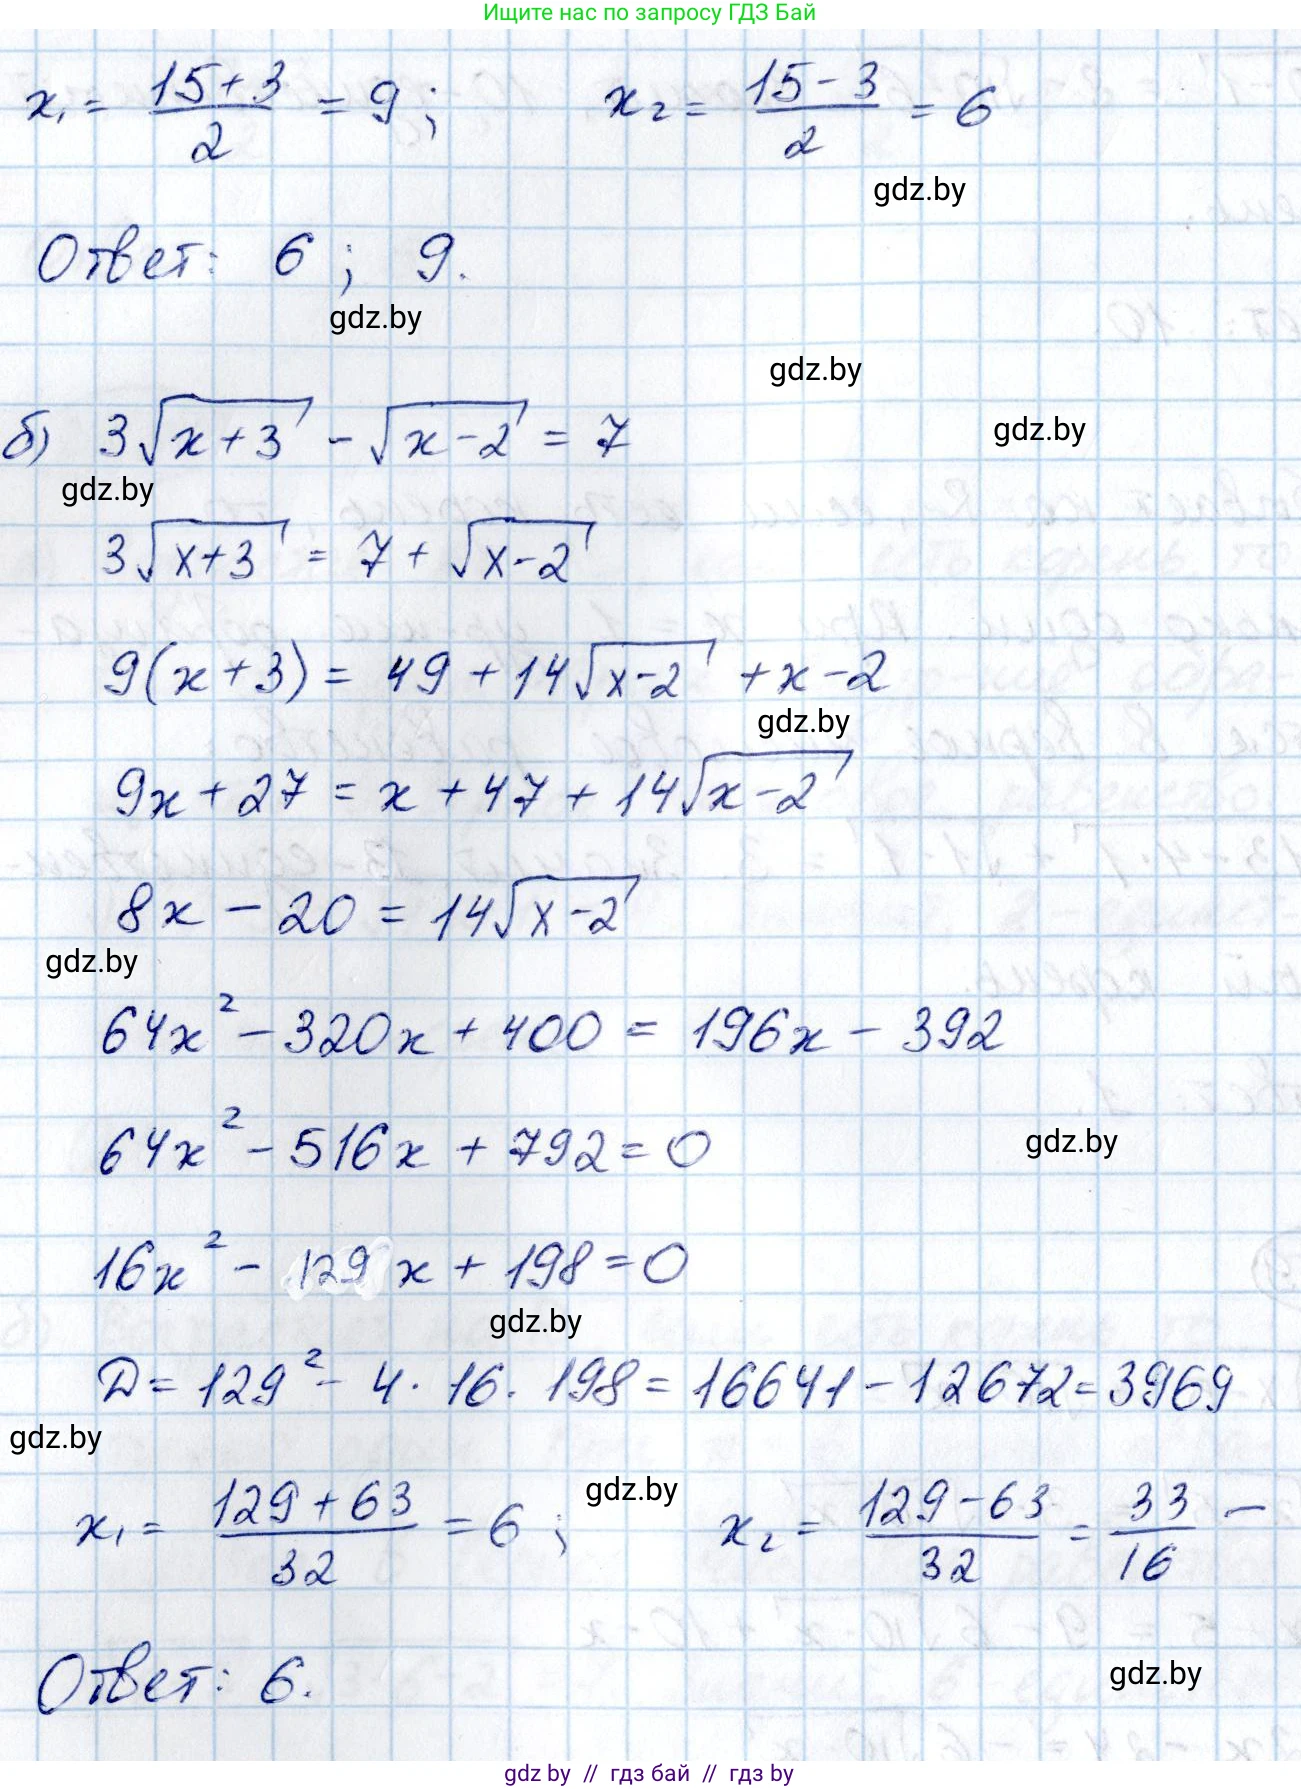 Ищите нас по запросу ГДЗ Бай
x₁ = (15+3)/2 = 9; x₂ = (15−3)/2 = 6
gdz.by
Ответ: 6; 9.
gdz.by
gdz.by
б) 3√(x+3) − √(x−2) = 7
gdz.by
gdz.by
3√(x+3) = 7 + √(x−2)
9(x+3) = 49 + 14√(x−2) + x − 2
gdz.by
9x + 27 = x + 47 + 14√(x−2)
8x − 20 = 14√(x−2)
gdz.by
64x² − 320x + 400 = 196x − 392
64x² − 516x + 792 = 0
gdz.by
16x² − 129x + 198 = 0
gdz.by
D = 129² − 4 · 16 · 198 = 16641 − 12672 = 3969
gdz.by
gdz.by
x₁ = (129+63)/32 = 6; x₂ = (129−63)/32 = 33/16 −
Ответ: 6.
gdz.by
gdz by // гдз бай // гдз by